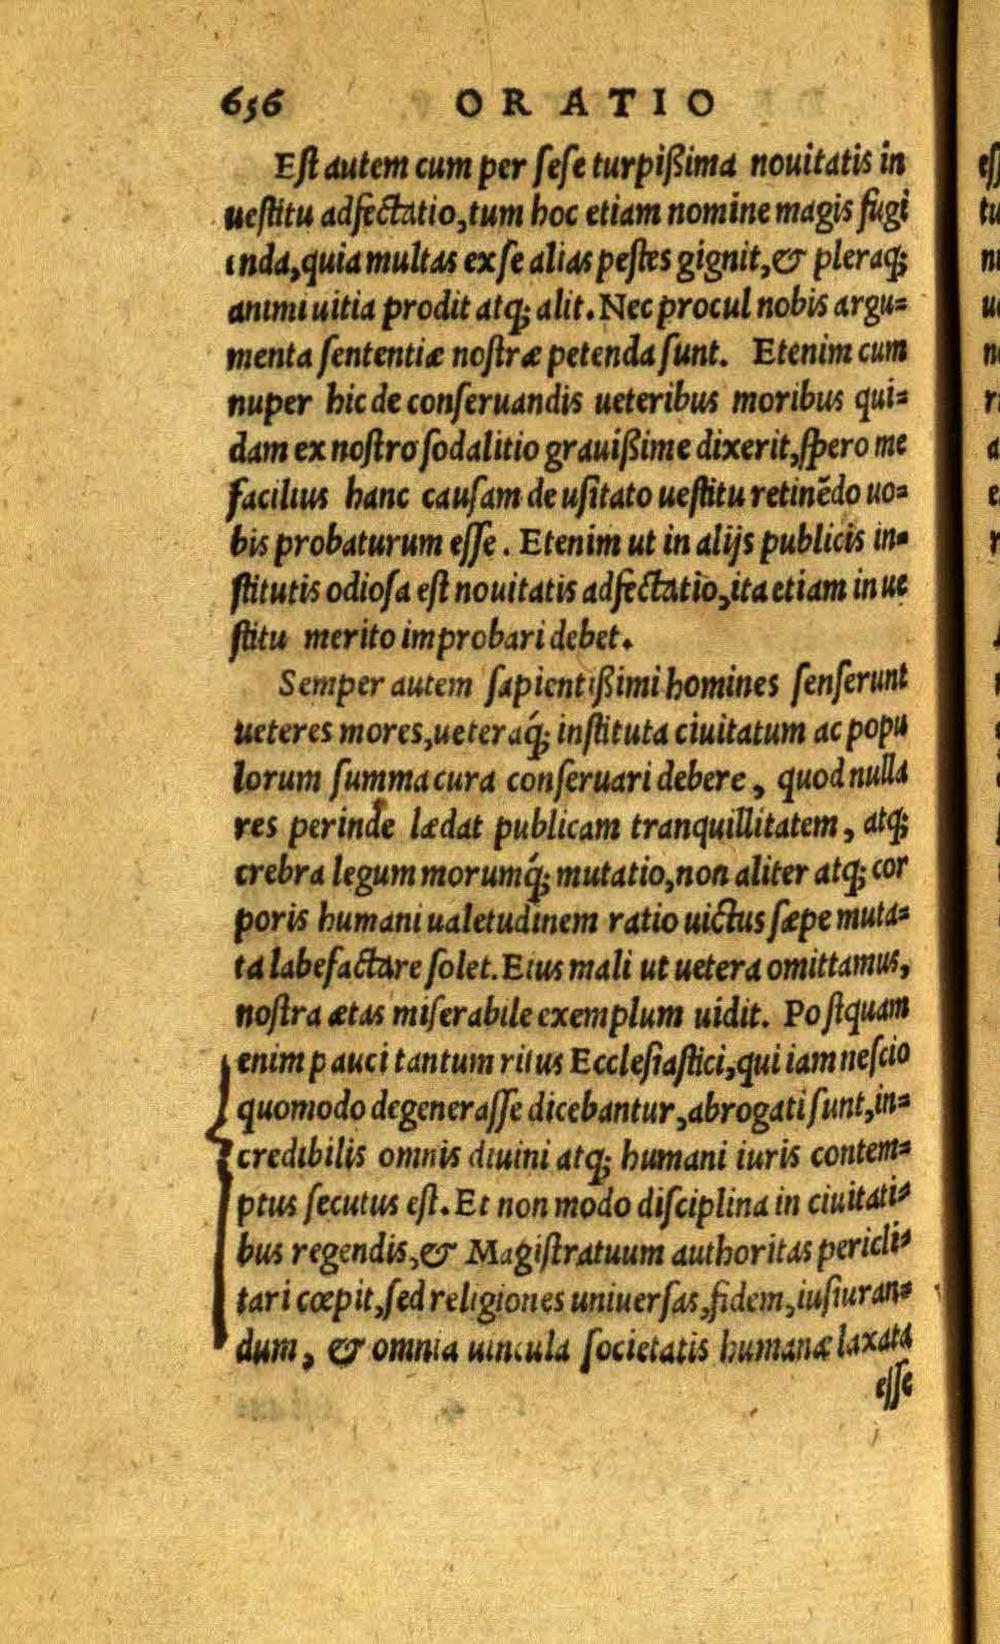 656 ORATIO
Est autem cum per sese turpißima nouitatis in
uestitu adfectatio, tum hoc etiam nomine magis fugi
enda, quia multas ex se alias pestes gignit, & pleraq;
animi uitia prodit atq; alit. Nec procul nobis argu=
menta sententiæ nostræ petenda sunt. Etenim cum
nuper hic de conseruandis ueteribus moribus qui=
dam ex nostro sodalitio grauißime dixerit, spero me
facilius hanc causam de usitato uestitu retinēdo uo=
bis probaturum esse. Etenim ut in alijs publicis in=
stitutis odiosa est nouitatis adfectatio, ita etiam in ue
stitu merito improbari debet.
Semper autem sapientißimi homines senserunt
ueteres mores, ueteraq́; instituta ciuitatum ac popu
lorum summa cura conseruari debere, quod nulla
res perinde lædat publicam tranquillitatem, atq;
crebra legum morumq́; mutatio, non aliter atq; cor
poris humani ualetudinem ratio uictus sæpe muta=
ta labefactare solet. Eius mali ut uetera omittamus,
nostra ætas miserabile exemplum uidit. Postquam
enim pauci tantum ritus Ecclesiastici, qui iam nescio
quomodo degenerasse dicebantur, abrogati sunt, in=
credibilis omnis diuini atq; humani iuris contem=
ptus secutus est. Et non modo disciplina in ciuitati=
bus regendis, & Magistratuum authoritas pericli=
tari cœpit, sed religiones uniuersas, fidem, iusiuran=
dum, & omnia uincula societatis humanæ laxata
esse